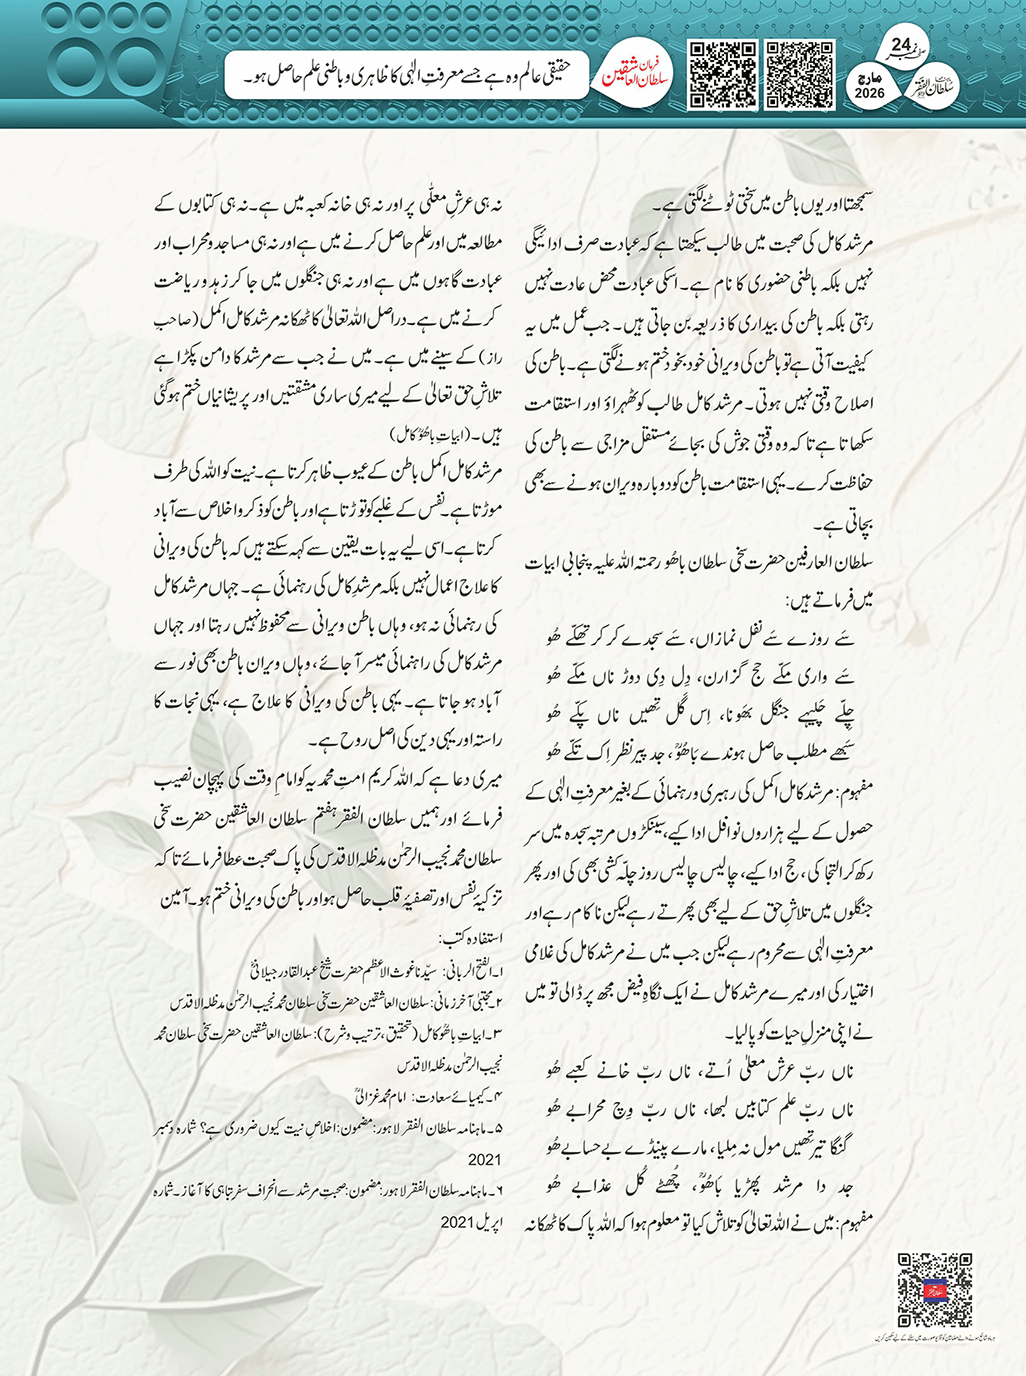 ماہنامہ سلطان الفقر لاہور
صفحہ نمبر 24
مارچ 2026
فرمان سلطان العاشقین
حقیقی عالم وہ ہے جسے معرفتِ الٰہی کا ظاہری و باطنی علم حاصل ہو۔
سمجھتا اور یوں باطن میں سختی ٹوٹنے لگتی ہے۔
مرشد کامل کی صحبت میں طالب سیکھتا ہے کہ عبادت صرف ادائیگی
نہیں بلکہ باطنی حضوری کا نام ہے۔ اسکی عبادت محض عادت نہیں
رہتی بلکہ باطن کی بیداری کا ذریعہ بن جاتی ہیں۔ جب عمل میں یہ
کیفیت آتی ہے تو باطن کی ویرانی خودبخود ختم ہونے لگتی ہے۔ باطن کی
اصلاح وقتی نہیں ہوتی۔ مرشد کامل طالب کو ٹھہراؤ اور استقامت
سکھاتا ہے تاکہ وہ وقتی جوش کی بجائے مستقل مزاجی سے باطن کی
حفاظت کرے۔ یہی استقامت باطن کو دوبارہ ویران ہونے سے بھی
بچاتی ہے۔
سلطان العارفین حضرت سخی سلطان باھُو رحمتہ اللہ علیہ پنجابی ابیات
میں فرماتے ہیں:
سَے روزے سَے نفل نمازاں، سَے سجدے کر کر تھکّے ھُو
سَے واری مکّے حج گزارن، دِل دِی دوڑ ناں مکّے ھُو
چِلّے چَلیہے جنگل بھَونا، اِس گَل تھیں ناں پکّے ھُو
سَبھے مطلب حاصل ہوندے باھُوؒ، جد پیر نظر اِک تکّے ھُو
مفہوم: مرشد کامل اکمل کی رہبری و رہنمائی کے بغیر معرفتِ الٰہی کے
حصول کے لیے ہزاروں نوافل ادا کیے، سینکڑوں مرتبہ سجدہ میں سر
رکھ کر التجا کی، حج ادا کیے، چالیس چالیس روز چلّہ کشی بھی کی اور پھر
جنگلوں میں تلاشِ حق کے لیے بھی پھرتے رہے لیکن ناکام رہے اور
معرفتِ الٰہی سے محروم رہے لیکن جب میں نے مرشد کامل کی غلامی
اختیار کی اور میرے مرشد کامل نے ایک نگاہِ فیض مجھ پر ڈالی تو میں
نے اپنی منزلِ حیات کو پالیا۔
ناں ربّ عرش معلیٰ اُتے، ناں ربّ خانے کعبے ھُو
ناں ربّ علم کتابیں لبھا، ناں ربّ وِچ محرابے ھُو
گنگا تیرتھیں مول نہ مِلیا، مارے پینڈے بے حسابے ھُو
جد دا مرشد پھڑیا باھُوؒ، چُھٹے کُل عذابے ھُو
مفہوم: میں نے اللہ تعالیٰ کو تلاش کیا تو معلوم ہوا کہ اللہ پاک کا ٹھکانہ
نہ ہی عرشِ معلّٰی پر اور نہ ہی خانہ کعبہ میں ہے۔ نہ ہی کتابوں کے
مطالعہ میں اور علم حاصل کرنے میں ہے اور نہ ہی مساجد و محراب اور
عبادت گاہوں میں ہے اور نہ ہی جنگلوں میں جا کر زہد و ریاضت
کرنے میں ہے۔ دراصل اللہ تعالیٰ کا ٹھکانہ مرشد کامل اکمل (صاحبِ
راز) کے سینے میں ہے۔ میں نے جب سے مرشد کا دامن پکڑا ہے
تلاشِ حق تعالیٰ کے لیے میری ساری مشقتیں اور پریشانیاں ختم ہو گئی
ہیں۔ (ابیاتِ باھُوؒ کامل)
مرشد کامل اکمل باطن کے عیوب ظاہر کرتا ہے۔ نیت کو اللہ کی طرف
موڑتا ہے۔ نفس کے غلبے کو توڑتا ہے اور باطن کو ذکر و اخلاص سے آباد
کرتا ہے۔ اسی لیے یہ بات یقین سے کہہ سکتے ہیں کہ باطن کی ویرانی
کا علاج اعمال نہیں بلکہ مرشدِ کامل کی رہنمائی ہے۔ جہاں مرشد کامل
کی رہنمائی نہ ہو، وہاں باطن ویرانی سے محفوظ نہیں رہتا اور جہاں
مرشد کامل کی راہنمائی میسر آجائے، وہاں ویران باطن بھی نور سے
آباد ہو جاتا ہے۔ یہی باطن کی ویرانی کا علاج ہے، یہی نجات کا
راستہ اور یہی دین کی اصل روح ہے۔
میری دعا ہے کہ اللہ کریم امتِ محمدیہ کو امامِ وقت کی پہچان نصیب
فرمائے اور ہمیں سلطان الفقر ہفتم سلطان العاشقین حضرت سخی
سلطان محمد نجیب الرحمٰن مدظلہ الاقدس کی پاک صحبت عطا فرمائے تاکہ
تزکیۂ نفس اور تصفیۂ قلب حاصل ہو اور باطن کی ویرانی ختم ہو۔ آمین
استفادہ کتب:
۱۔ الفتح الربانی: سیّدنا غوث الاعظم حضرت شیخ عبدالقادر جیلانیؓ
۲۔ مجتبیٰ آخر زمانی: سلطان العاشقین حضرت سخی سلطان محمد نجیب الرحمٰن مدظلہ الاقدس
۳۔ ابیاتِ باھُوؒ کامل (تحقیق، ترتیب و شرح): سلطان العاشقین حضرت سخی سلطان محمد
نجیب الرحمٰن مدظلہ الاقدس
۴۔ کیمیائے سعادت: امام محمد غزالیؒ
۵۔ ماہنامہ سلطان الفقر لاہور: مضمون: اخلاصِ نیت کیوں ضروری ہے؟ شمارہ دسمبر
2021
۶۔ ماہنامہ سلطان الفقر لاہور: مضمون: صحبتِ مرشد سے انحراف سفر تباہی کا آغاز۔ شمارہ
اپریل 2021